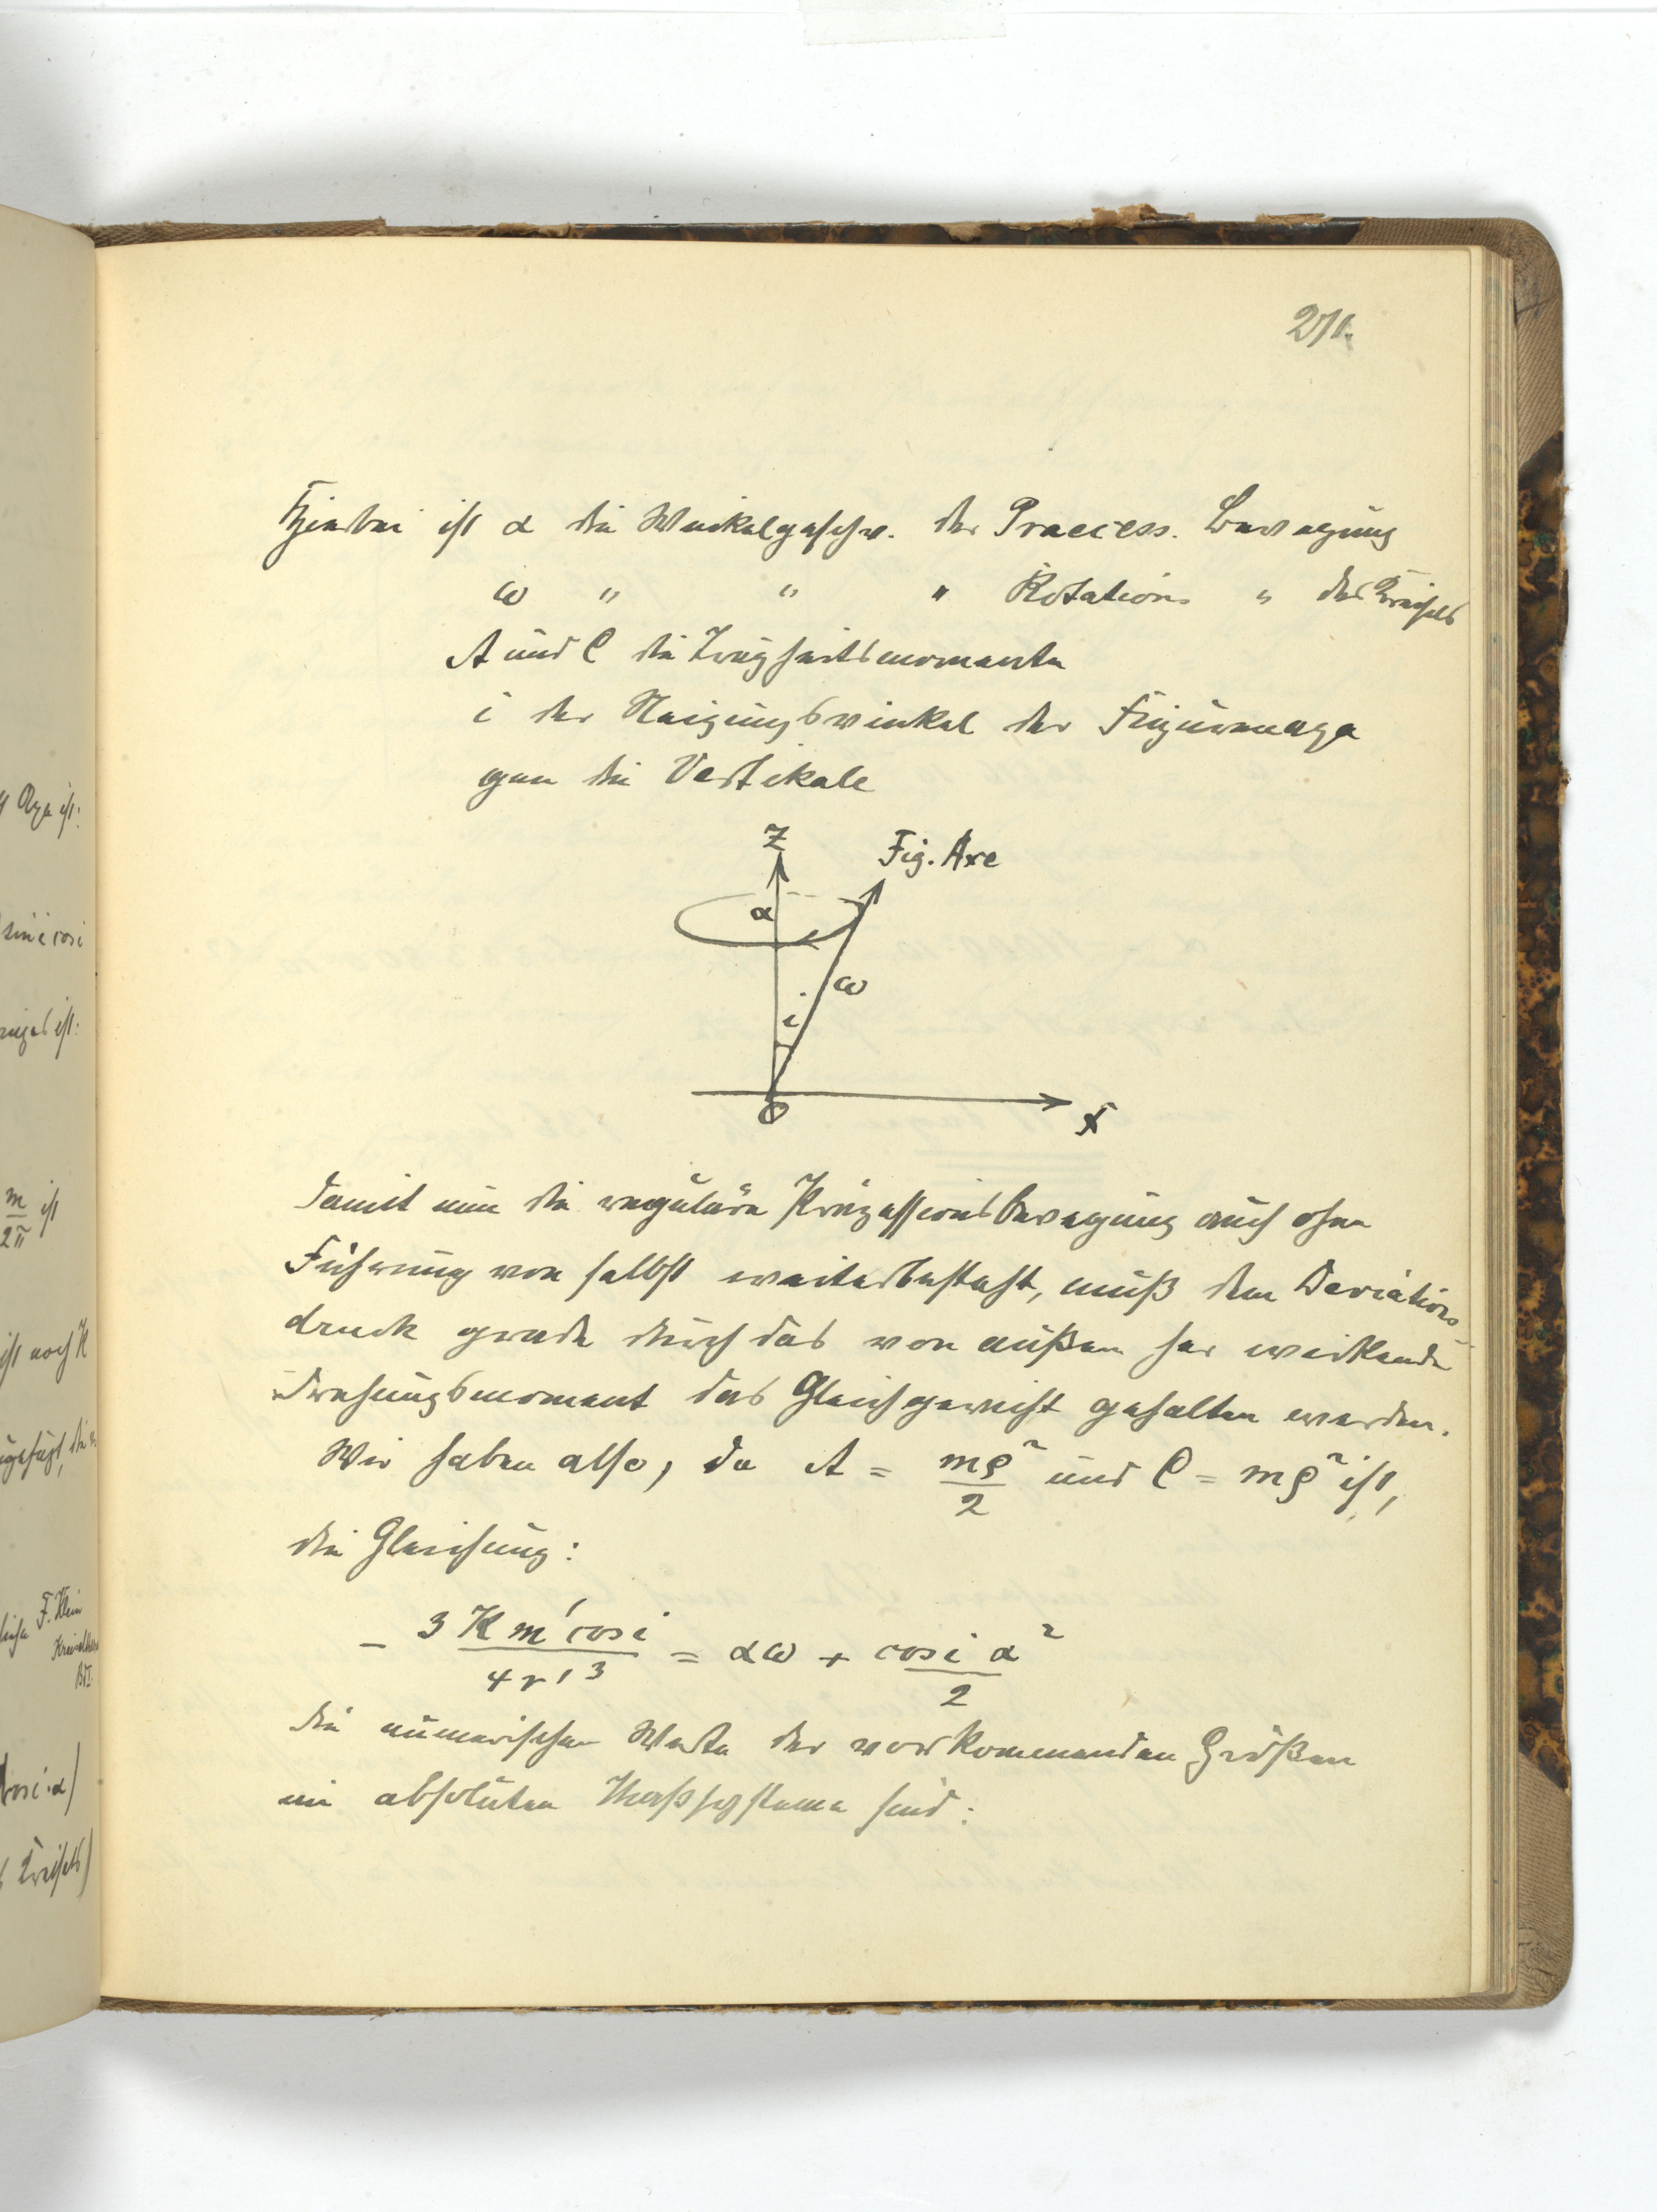 271.
Hierbei ist α die Winkelgeschw. der Praecess. Bewegung
ω " " " Rotations " des Kreisels
A und C die Trägheitsmomente
i der Neigungswinkel der Figurenaxe
gen die Vertikale
Z
Fig. Axe
α
ω
i
O
X
Damit nun die reguläre Präzessionsbewegung auch ohne
Führung von selbst weiterbesteht, muß dem Deviations-
druck grade durch das von außen her wirkende
Drehungsmoment das Gleichgewicht gehalten werden.
Wir haben also, da A = mρ²/2 und C = mρ² ist,
die Gleichung:
− 3 K m' cos i / 4 r'³ = αω + cos i α² / 2
Die numerischen Werte der vorkommenden Größen
im absoluten Maßsysteme sind:
Axe ist:
sin i cos i
ist:
m/2π ist
ist noch K
F. Klein
cos i · α)
Kreisels)